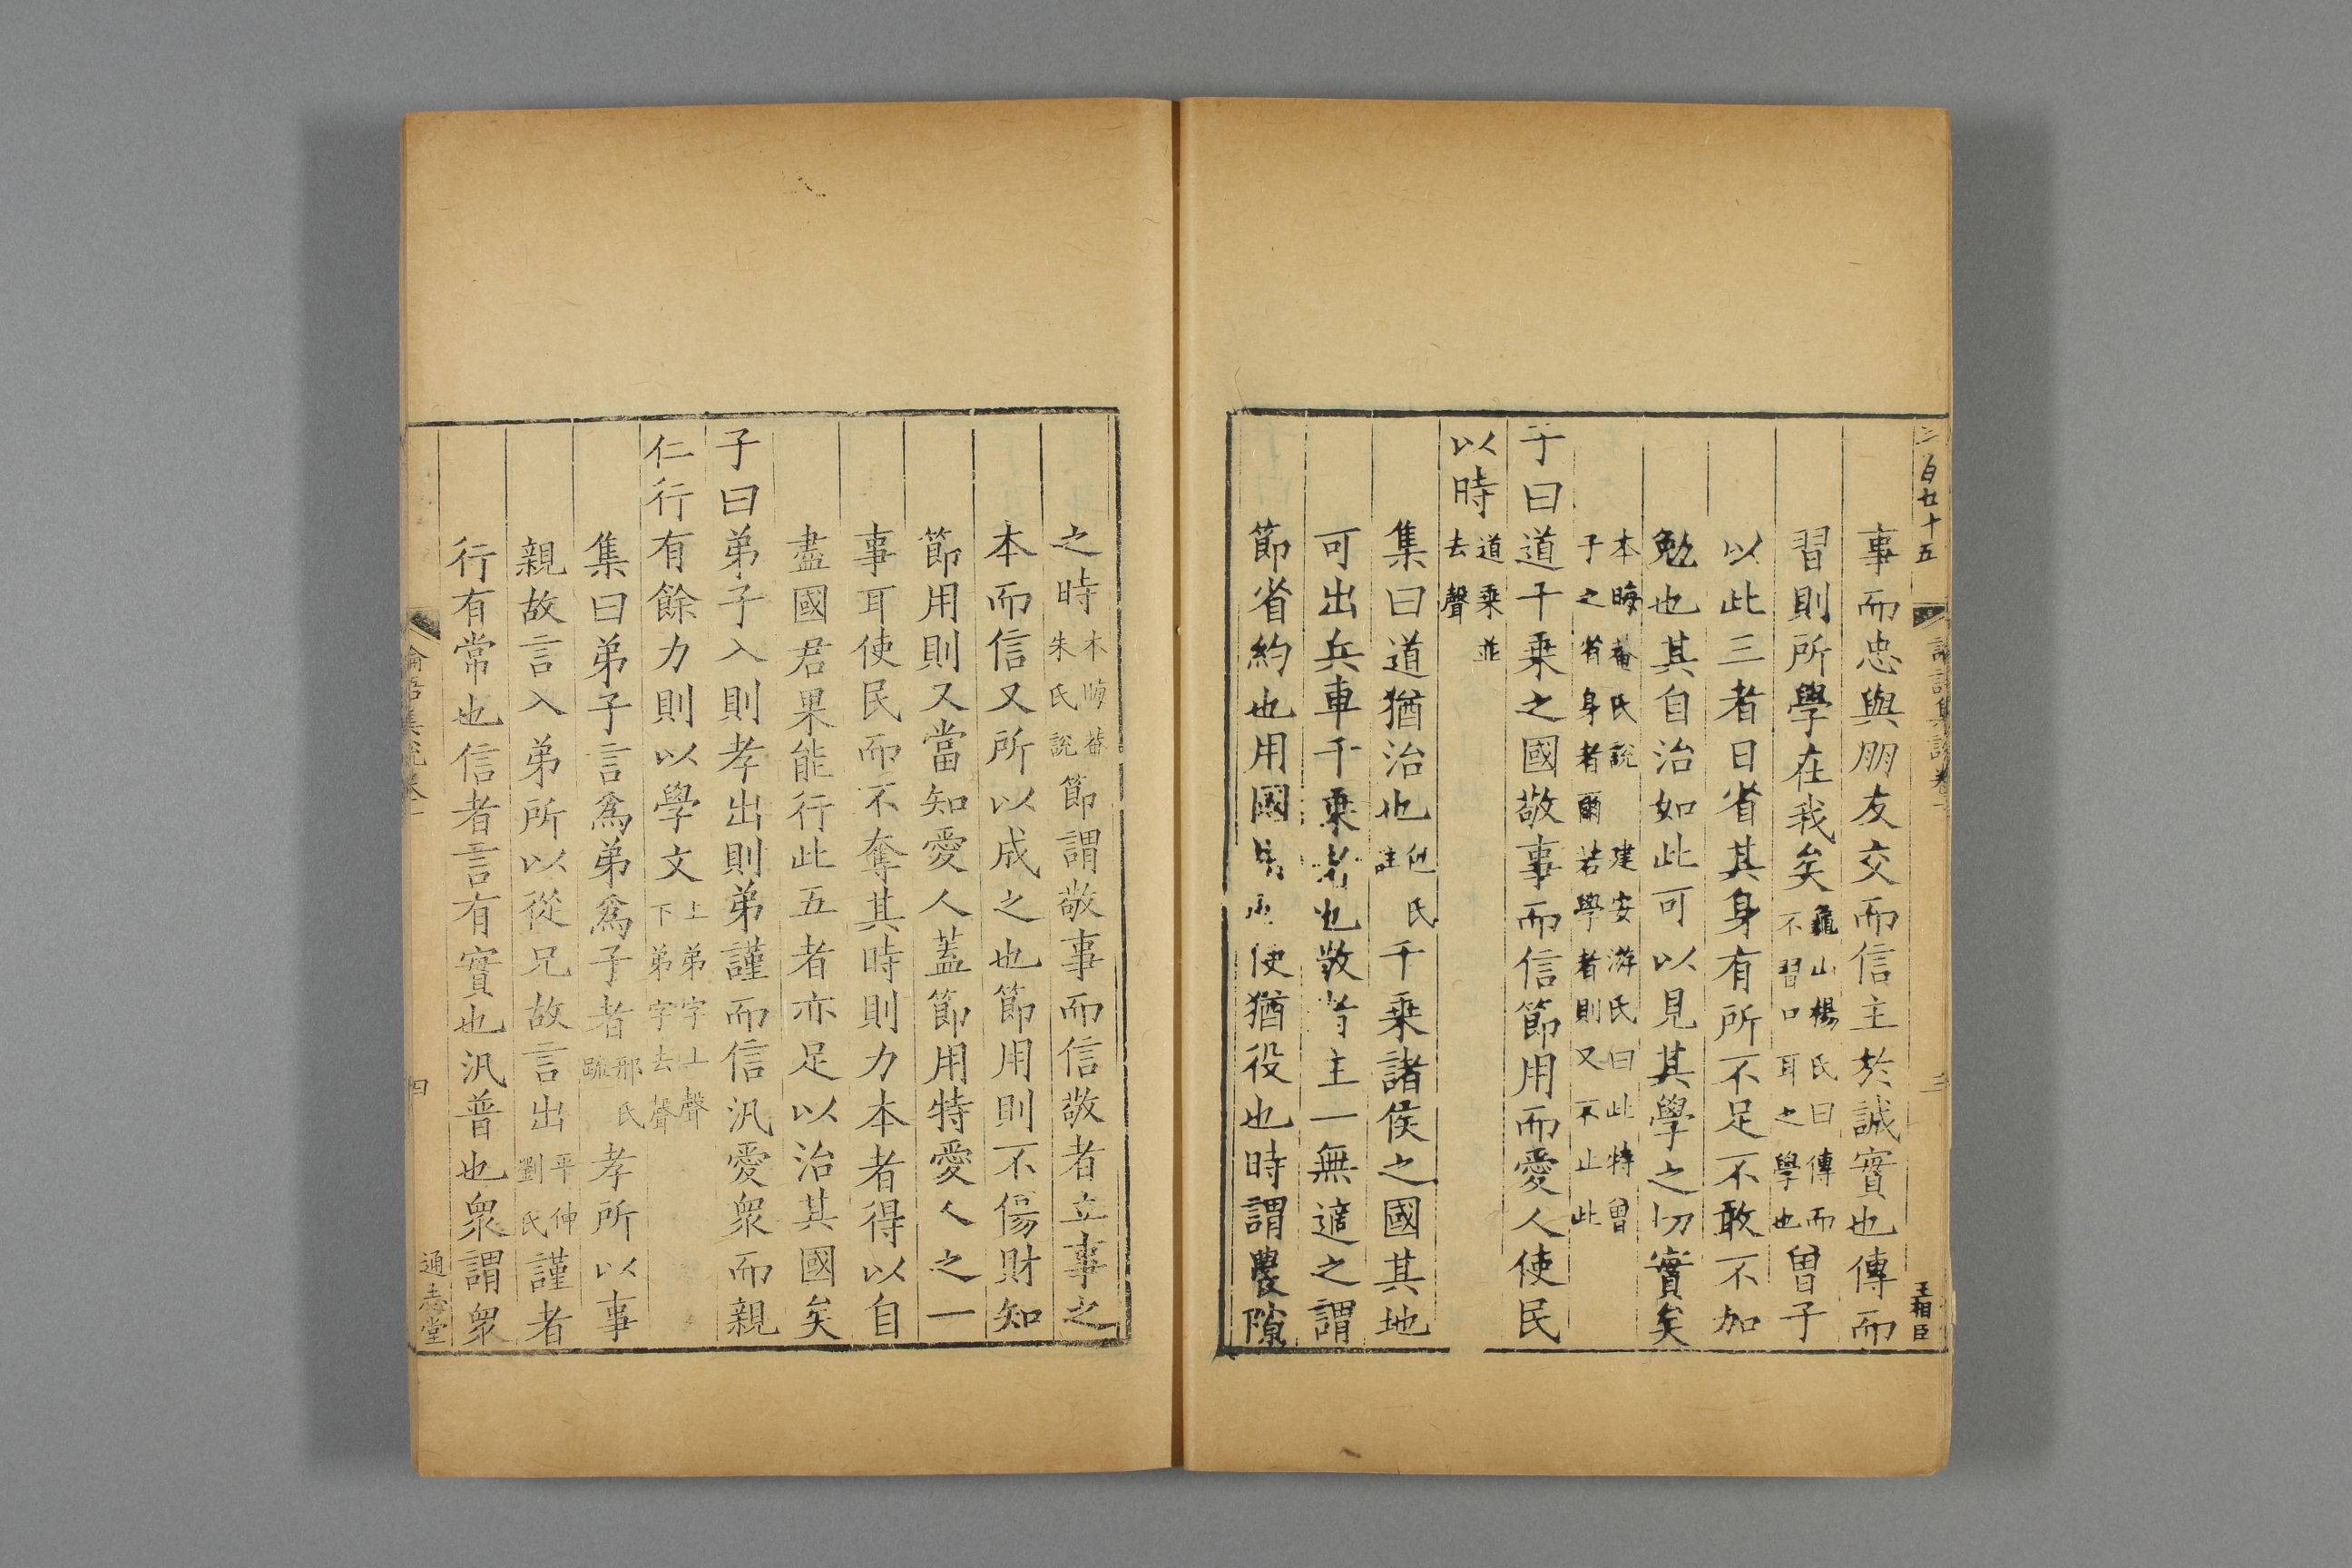 事而忠與朋友交而信主於誠實也傳而
習則所學在我矣龜山楊氏曰傳而不習口耳之學也曾子
以此三者日省其身有所不足不敢不加
勉也其自治如此可以見其學之切實矣
本晦菴氏說 建安游氏曰此特曾子之省身者爾若學者則又不止此
子曰道千乘之國敬事而信節用而愛人使民
以時道乘並去聲
集曰道猶治也包氏註千乘諸侯之國其地
可出兵車千乘者也敬者主一無適之謂
節省約也用國使猶役也時謂農隙
之時本晦菴朱氏說節謂敬事而信敬者立事之
本而信又所以成之也節用則不傷財知
節用則又當知愛人蓋節用特愛人之一
事耳使民而不奪其時則力本者得以自
盡國君果能行此五者亦足以治其國矣
子曰弟子入則孝出則弟謹而信汎愛眾而親
仁行有餘力則以學文上弟字上聲下弟字去聲
集曰弟子言爲弟爲子者邢氏疏孝所以事
親故言入弟所以從兄故言出平仲劉氏謹者
行有常也信者言有實也汎普也眾謂眾
論語集說卷一
三
王相臣
論語集說卷一
四
通志堂